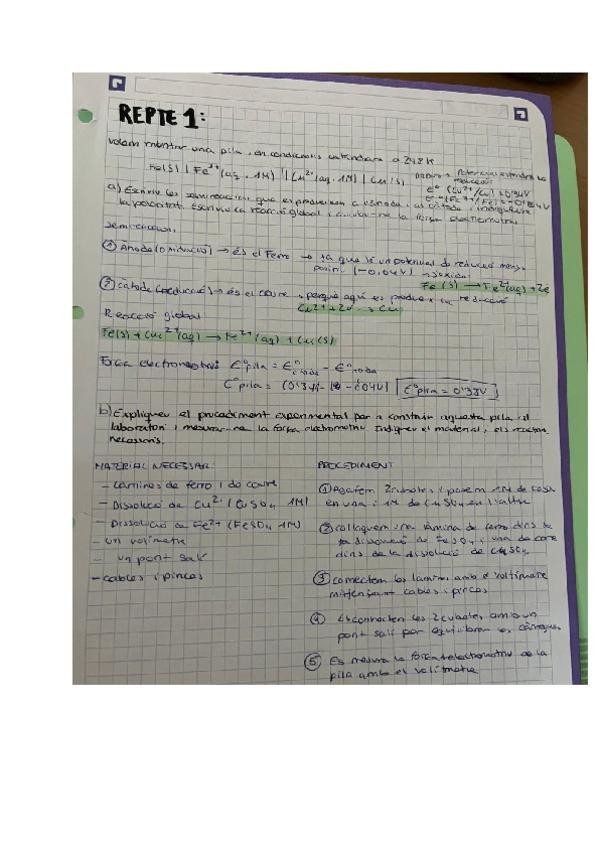 REPTE 1:
Volem muntar una pila, en condicions estàndard a 298 K
Fe(s) | Fe²⁺ (aq, 1M) || Cu²⁺ (aq, 1M) | Cu(s)
Potencial estàndard de
reducció
E° (Cu²⁺/Cu) = 0'34V
a) Escriviu les semireaccions que es produeixen a l'ànode i al càtode, i indiqueu-ne
la polaritat. Escriviu la reacció global i calculeu-ne la força electromotriu
semireaccions.
① Ànode (oxidació) → és el Ferro → ja que té un potencial de reducció menys
positiu (-0,04V) → s'oxida
Fe (s) → Fe²⁺(aq) + 2e
② càtode (reducció) → és el coure, perquè aquí es produeix la reducció
Cu²⁺ + 2e⁻ → Cu
Reacció global
Fe(s) + Cu²⁺(aq) → Fe²⁺(aq) + Cu(s)
Força electromotriu E°pila = E° càtode - E° ànode
E°pila = (0'34) - (-0'04V) E°pila = 0'38V
b) Expliqueu el procediment experimental per a construir aquesta pila al
laboratori i mesurar-ne la força electromotriu. Indiqueu el material i els reactius
necessaris.
MATERIAL NECESSARI
- Làmines de ferro i de coure
- Dissolució de Cu²⁺ (CuSO₄ 1M)
- Dissolució de Fe²⁺ (FeSO₄ 1M)
- un voltímetre
- un pont salí
- cables i pinces
PROCEDIMENT
① Agafem 2 cubetes i posem 1M de FeSO₄
en una i 1M de CuSO₄ en l'altre
② col·loquem una làmina de ferro dins la
dissolució de FeSO₄ i una de coure
dins de la dissolució de CuSO₄
③ connectem les làmines amb el voltímetre
mitjançant cables i pinces
④ Es connecten les 2 cubetes amb un
pont salí per equilibrar les càrregues
⑤ Es mesura la força electromotriu de la
pila amb el voltímetre